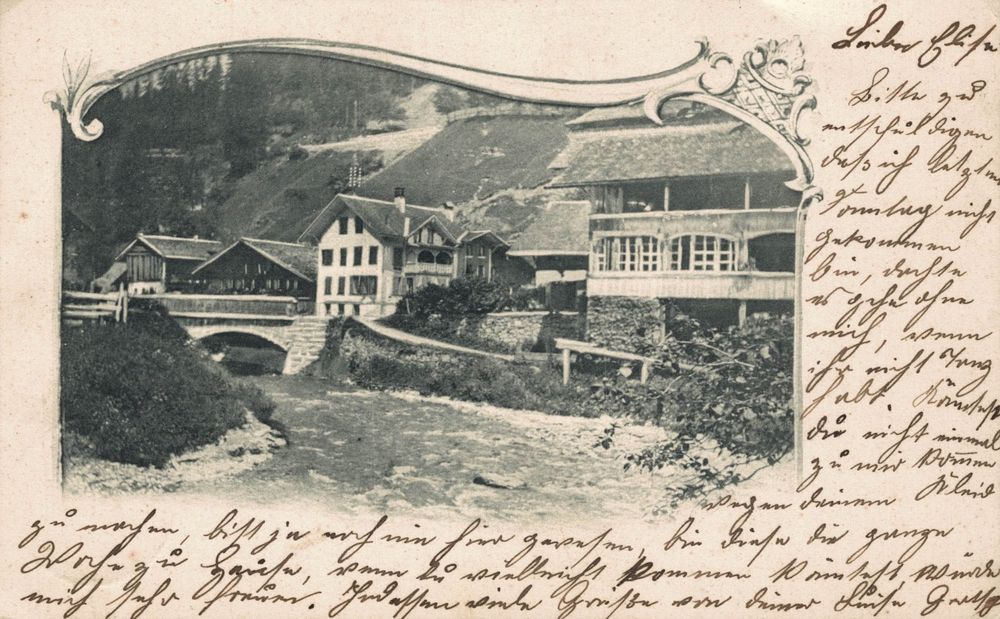 Liebe Elise
Bitte zu
entschuldigen
daß ich letzten
Sonntag nicht
gekommen
bin, dachte
es gehe ohne
mich, wenn
ihr nicht Tanz
habt. Könntest
du nicht einmal
zu mir kommen
wegen deinem Kleid
zu machen, bist ja noch nie hier gewesen, bin diese die ganze
Woche zu Hause, wenn du vielleicht kommen könntest, würde
mich sehr freuen. Indessen viele Grüße von deiner Luise